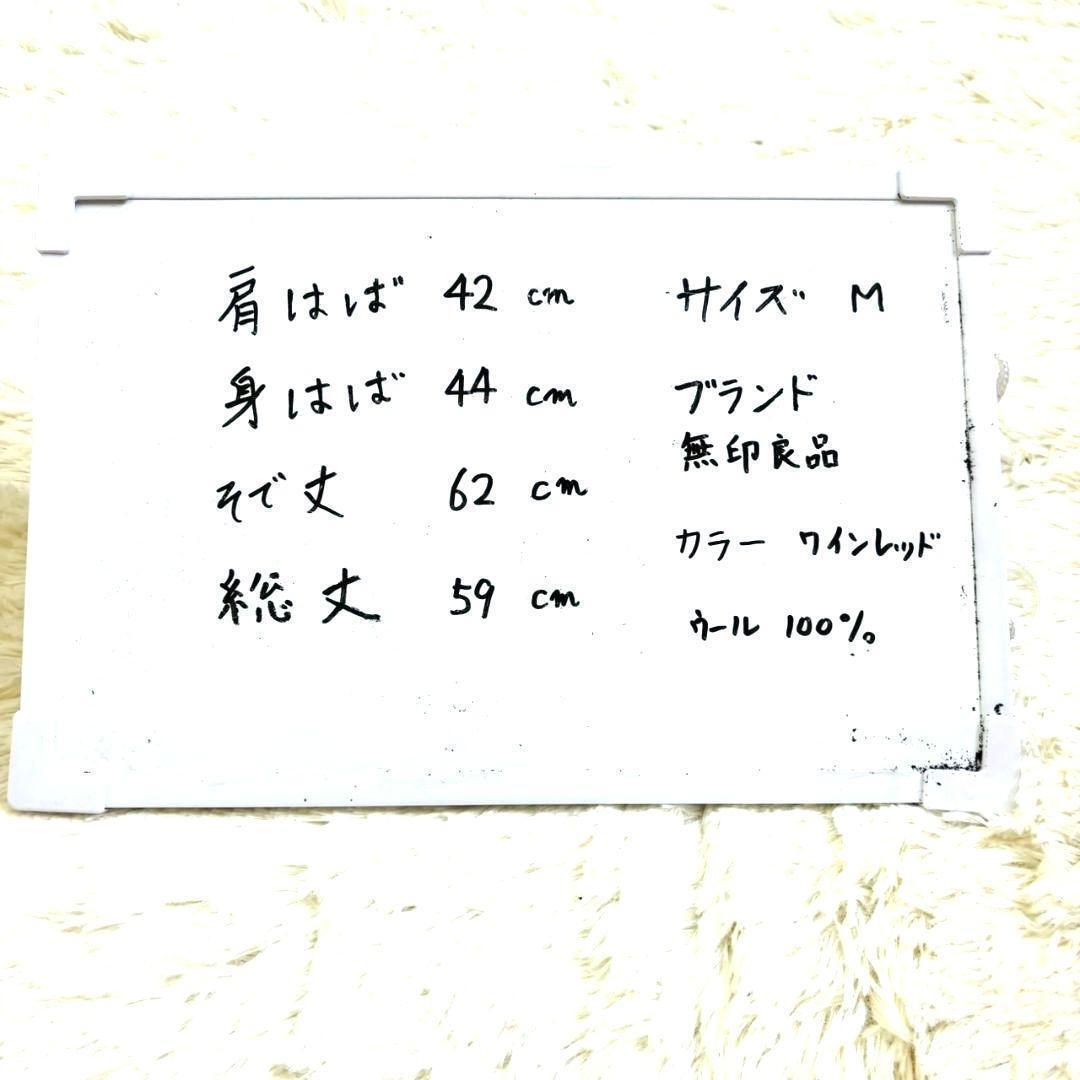 肩はば 42 cm
身はば 44 cm
そで丈 62 cm
総丈 59 cm
サイズ M
ブランド
無印良品
カラー ワインレッド
ウール 100%